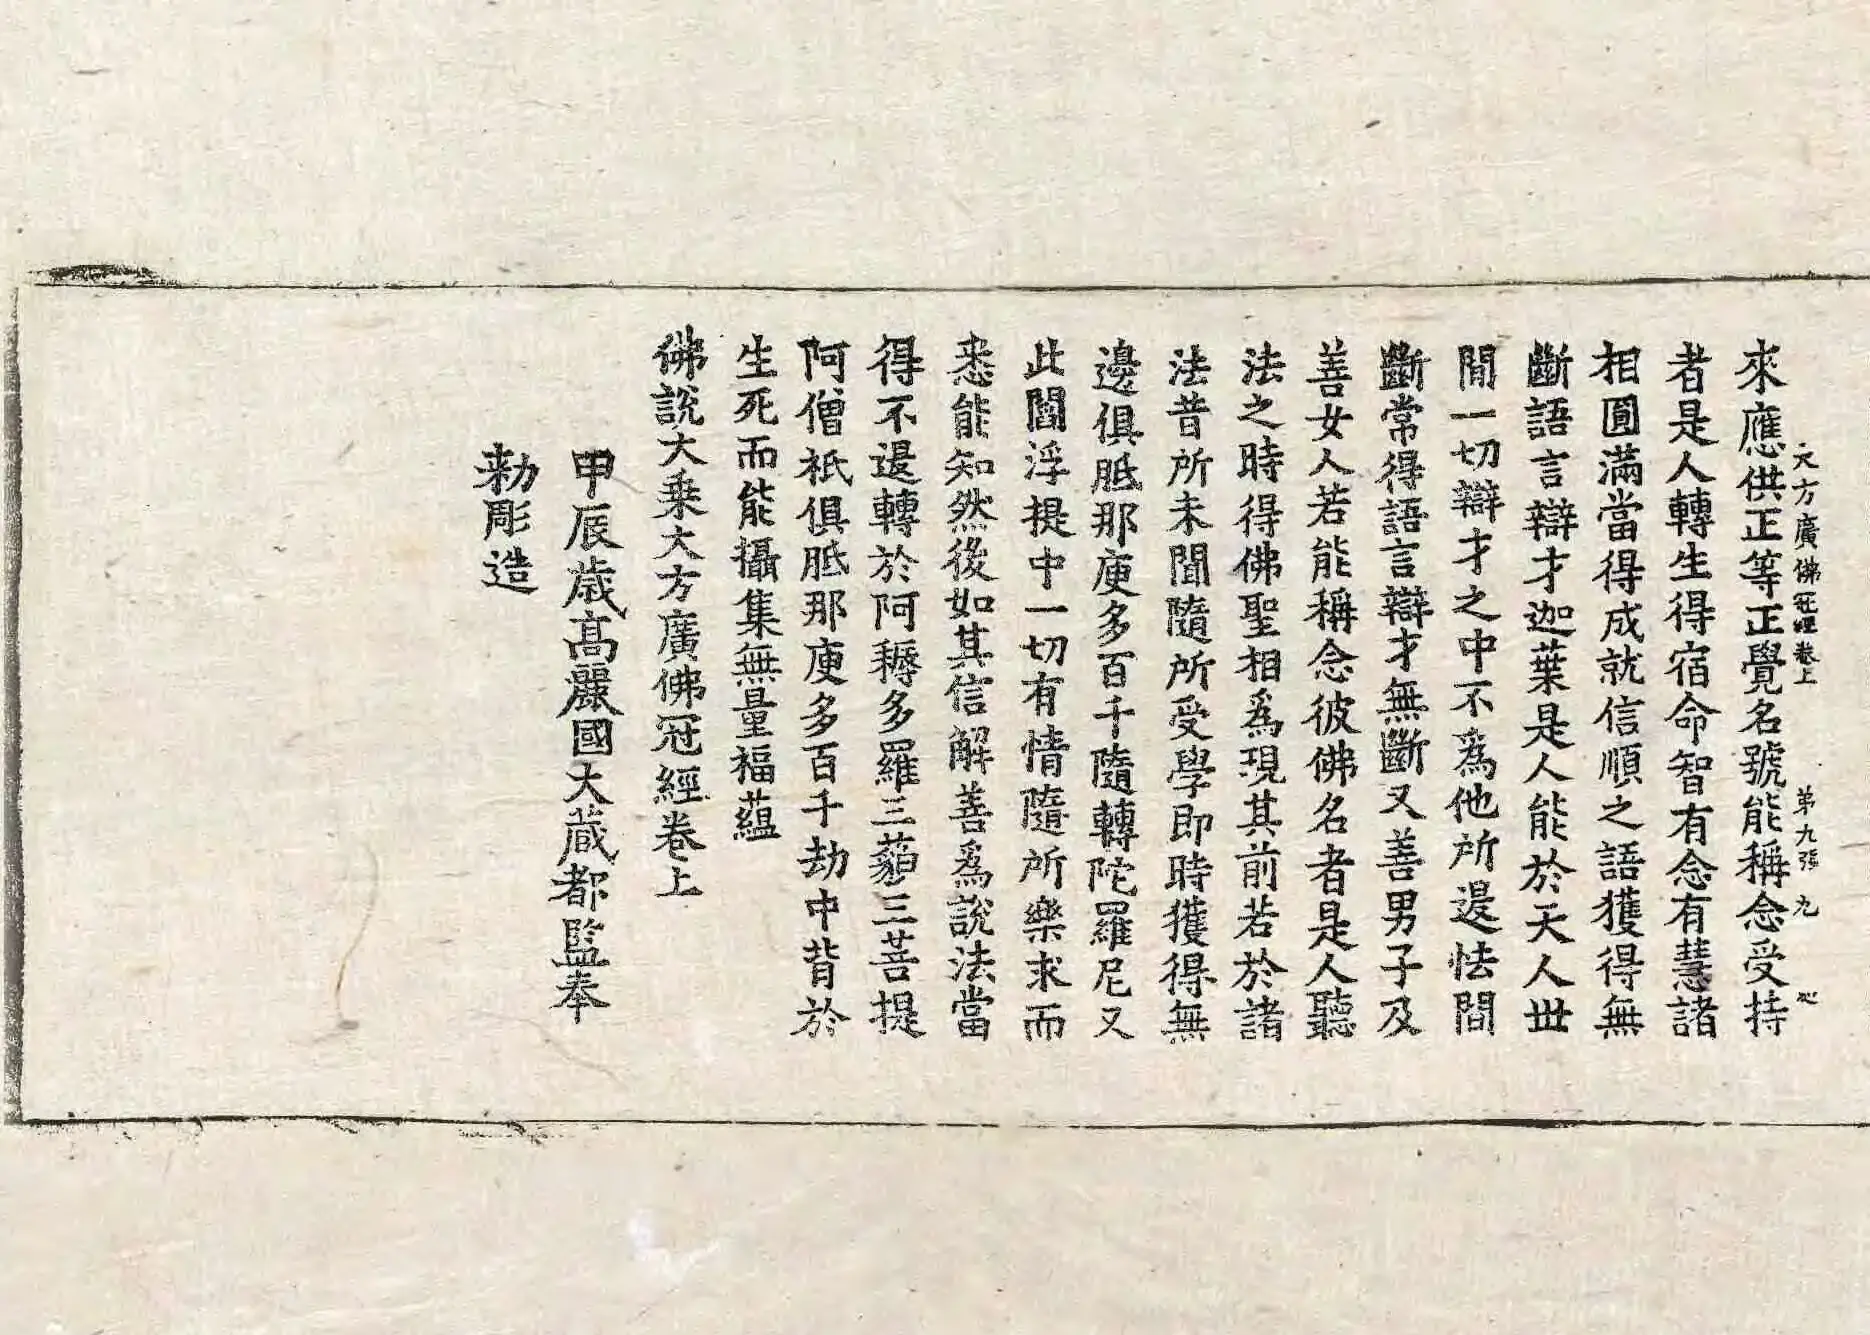 大方廣佛冠經卷上 第九張 九
來應供正等正覺名號能稱念受持
者是人轉生得宿命智有念有慧諸
相圓滿當得成就信順之語獲得無
斷語言辯才迦葉是人能於天人世
間一切辯才之中不爲他所退怯間
斷常得語言辯才無斷又善男子及
善女人若能稱念彼佛名者是人聽
法之時得佛聖相爲現其前若於諸
法昔所未聞隨所受學即時獲得無
邊俱胝那庾多百千隨轉陀羅尼又
此閻浮提中一切有情隨所樂求而
悉能知然後如其信解善爲說法當
得不退轉於阿耨多羅三藐三菩提
阿僧祇俱胝那庾多百千劫中背於
生死而能攝集無量福蘊
佛說大乗大方廣佛冠經卷上
甲辰歲高麗國大藏都監奉
勅彫造